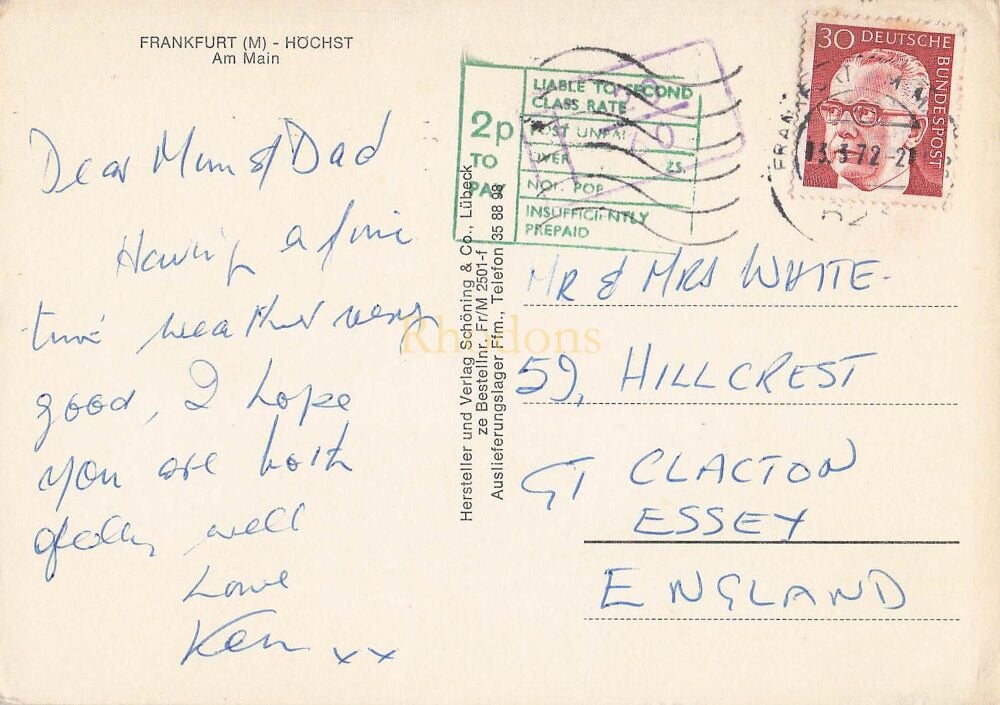 FRANKFURT (M) - HÖCHST
Am Main
Dear Mum & Dad
Having a fine
time weather very
good, I hope
you are both
well
Love
Ken xx
Hersteller und Verlag Schöning & Co., Lübeck
ze Bestellnr. Fr/M 2501-f
Auslieferungslager Ffm., Telefon 35 88 98
2p
TO
PAY
LIABLE TO SECOND
CLASS RATE
POST UNPAI
OVER ZS.
NOT. POP
INSUFFICIENTLY
PREPAID
30 DEUTSCHE
BUNDESPOST
FRAN
13.3.72-21
MR & MRS WHITE-
59, HILLCREST
GT CLACTON
ESSEX
ENGLAND
Rhodons